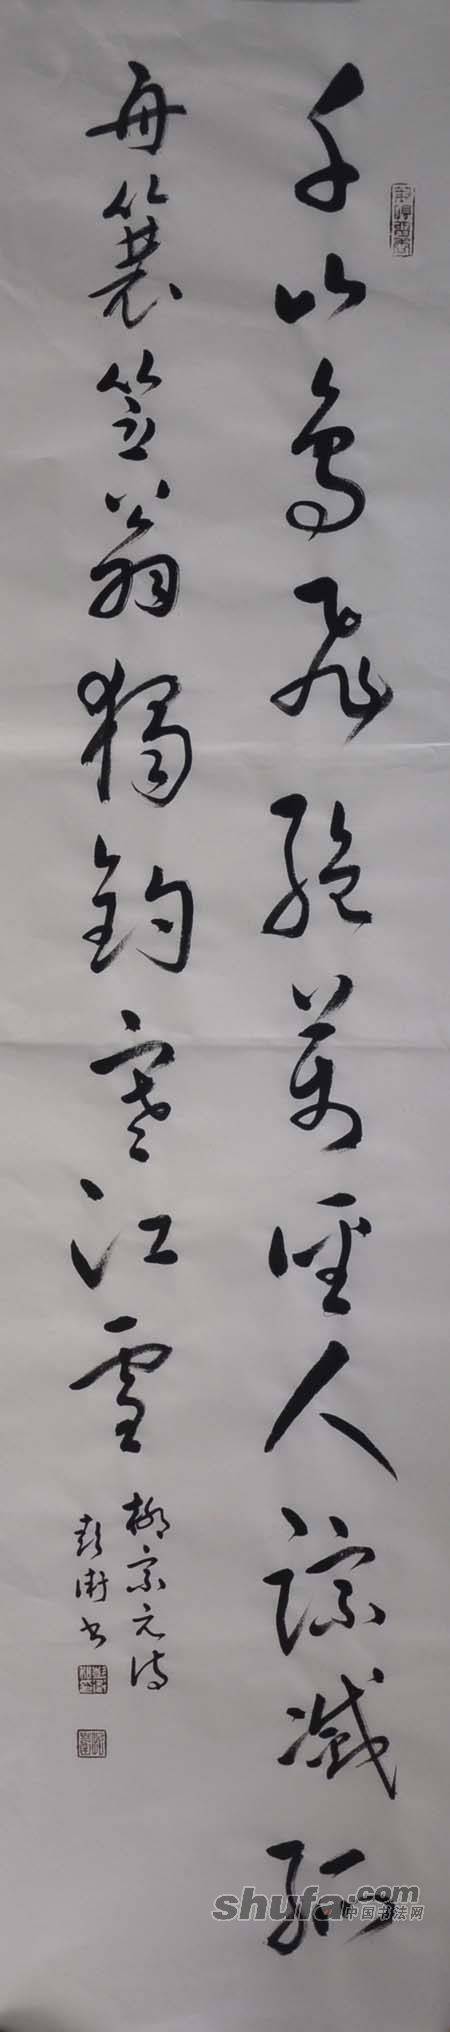 千山鳥飛絕萬徑人踪滅孤
舟簑笠翁獨釣寒江雪
柳宗元诗
書
shufa.com
中国书法网